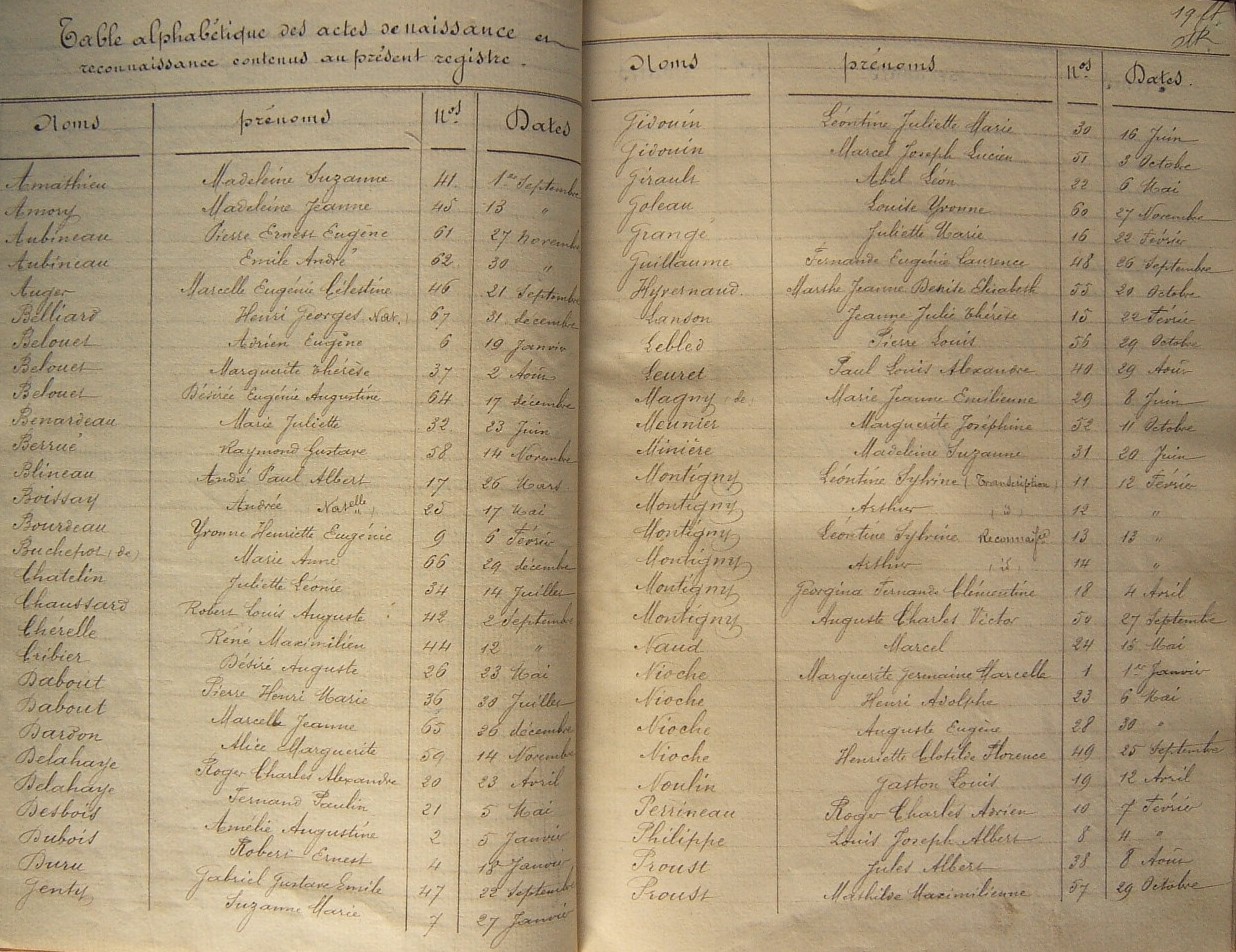 Table alphabétique des actes de naissance et
reconnaissance contenus au présent registre.
Noms prénoms Nos Dates
Amathieu Madeleine Suzanne 41 1er Septembre
Amory Madeleine Jeanne 45 13 "
Aubineau Pierre Ernest Eugène 61 27 novembre
Aubineau Emile André 62 30 "
Auger Marcelle Eugénie Célestine 46 21 Septembre
Belliard Henri Georges Nat. 67 31 décembre
Belouet Adrien Eugène 6 19 Janvier
Belouet Marguerite Thérèse 37 2 Août
Belouet Désirée Eugénie Augustine 64 17 décembre
Benardeau Marie Juliette 32 23 Juin
Berrué Raymond Gustave 58 14 Novembre
Blineau André Paul Albert 17 26 Mars
Boissay Andrée Natelle 25 17 Mai
Bourdeau Yvonne Henriette Eugénie 9 6 Février
Buchepot (de) Marie Anne 66 29 décembre
Chatelin Juliette Léonie 34 14 Juillet
Chaussard Robert Louis Auguste 42 2 Septembre
Chérelle Réné Maximilien 44 12 "
Cribier Désiré Auguste 26 23 Mai
Dabout Pierre Henri Marie 36 30 Juillet
Dabout Marcelle Jeanne 65 26 décembre
Dardon Alice Marguerite 59 14 Novembre
Delahaye Roger Charles Alexandre 20 23 Avril
Delahaye Fernand Paulin 21 5 Mai
Desbois Amélie Augustine 2 5 Janvier
Dubois Robert Ernest 4 18 Janvier
Duru Gabriel Gustave Emile 47 22 Septembre
Genty Suzanne Marie 7 27 Janvier
Noms prénoms Nos Dates.
Gidouin Léontine Juliette Marie 30 16 Juin
Gidouin Marcel Joseph Lucien 51 3 Octobre
Girault Abel Léon 22 6 Mai
Goleau Louise Yvonne 60 27 Novembre
Grangé Juliette Marie 16 22 Février
Guillaume Fernande Eugénie Laurence 48 26 Septembre
Hyvernaud Marthe Jeanne Denise Elisabeth 55 20 Octobre
Landon Jeanne Julie Thérèse 15 22 Février
Lebled Pierre Louis 56 29 Octobre
Leuret Paul Louis Alexandre 40 29 Août
Magny (de) Marie Jeanne Emilienne 29 8 Juin
Meunier Marguerite Joséphine 52 11 Octobre
Minière Madeleine Suzanne 31 20 Juin
Montigny Léontine Sylvine (Transcription) 11 12 Février
Montigny Arthur (id) 12 "
Montigny Léontine Sylvine Reconnaisce 13 13 "
Montigny Arthur (id) 14 "
Montigny Georgina Fernande Clémentine 18 4 Avril
Montigny Auguste Charles Victor 50 27 Septembre
Naud Marcel 24 15 Mai
Nioche Marguerite Germaine Marcelle 1 1er Janvier
Nioche Henri Adolphe 23 6 Mai
Nioche Auguste Eugène 28 30 "
Nioche Henriette Clotilde Florence 49 25 Septembre
Noulin Gaston Louis 19 12 Avril
Perrineau Roger Charles Adrien 10 7 Février
Philippe Louis Joseph Albert 8 4 "
Proust Jules Albert 38 8 Août
Proust Mathilde Maximilienne 57 29 Octobre